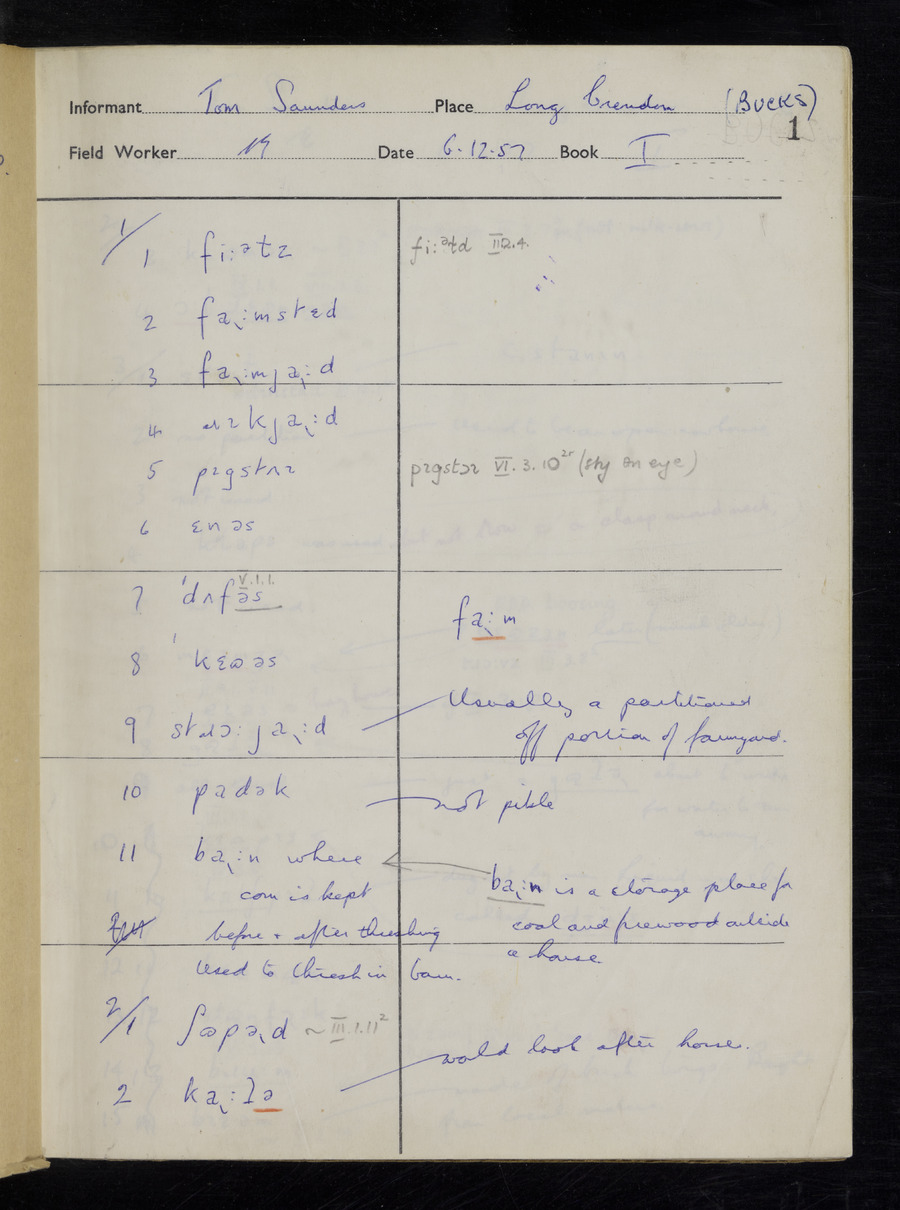 Informant Tom Saunders Place Long Crendon (BUCKS)
1
Field Worker Date 6.12.57 Book I
1/1 fiːᵊtz fiːᵊtd III.2.4.
2 fa˞ːmstɛd
3 fa˞ːmja˞ːd
4 ja˞ːd
5 pɪgstʌɪ pɪgstɔɪ VI.3.10 (sty on eye)
6 ɛnəs
V.1.1.
7 ˈdʌfəs fa˞ːm
8 ˈkɛωəs
9 ja˞ːd Usually a partitioned
off portion of farmyard.
10 padək not pikle
11 ba˞ːn where
corn is kept ba˞ːn is a storage place for
before + after threshing coal and firewood outside
Used to thresh in barn. a house
2/1 ʃəpə˞d ~ III.1.11²
would look after horse.
2 ka˞ːtə